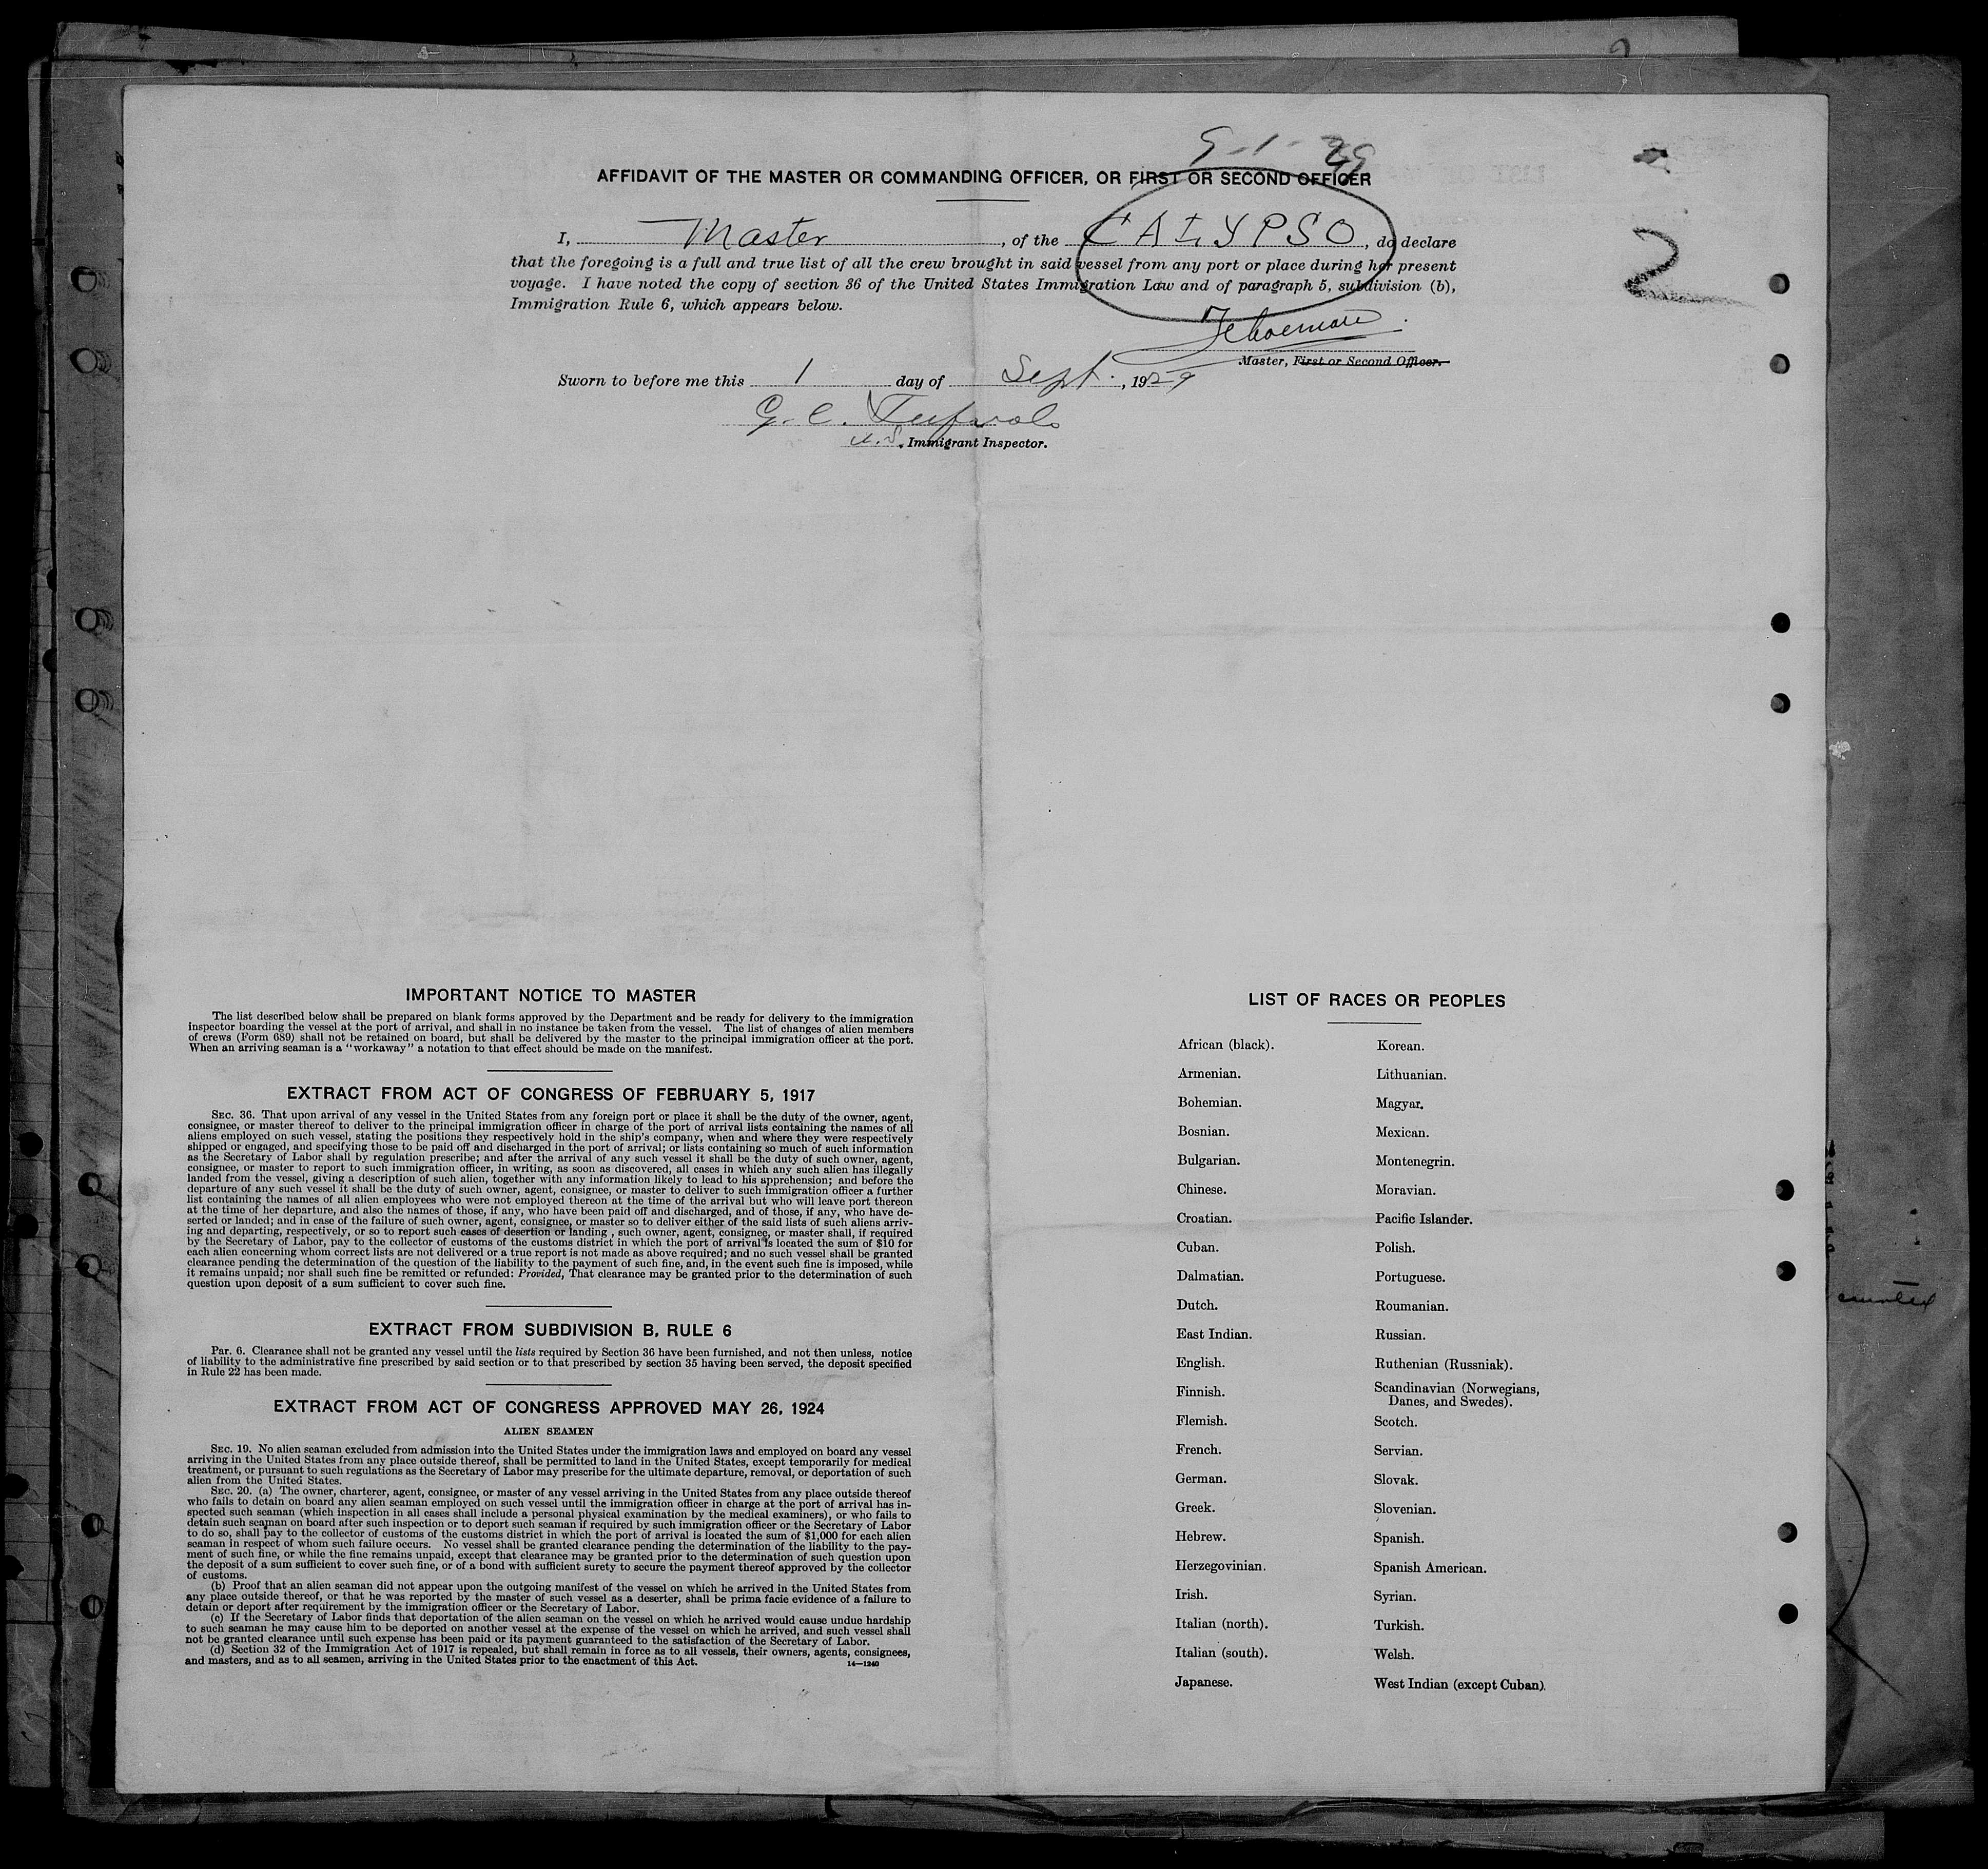 9-1-29
AFFIDAVIT OF THE MASTER OR COMMANDING OFFICER, OR FIRST OR SECOND OFFICER
I, Master, of the CALYPSO, do declare
that the foregoing is a full and true list of all the crew brought in said vessel from any port or place during her present
voyage. I have noted the copy of section 36 of the United States Immigration Law and of paragraph 5, subdivision (b),
Immigration Rule 6, which appears below.
2
Master, First or Second Officer.
Sworn to before me this 1 day of Sept., 1929
G. C.
U.S. Immigrant Inspector.
IMPORTANT NOTICE TO MASTER
The list described below shall be prepared on blank forms approved by the Department and be ready for delivery to the immigration
inspector boarding the vessel at the port of arrival, and shall in no instance be taken from the vessel. The list of changes of alien members
of crews (Form 689) shall not be retained on board, but shall be delivered by the master to the principal immigration officer at the port.
When an arriving seaman is a "workaway" a notation to that effect should be made on the manifest.
EXTRACT FROM ACT OF CONGRESS OF FEBRUARY 5, 1917
SEC. 36. That upon arrival of any vessel in the United States from any foreign port or place it shall be the duty of the owner, agent,
consignee, or master thereof to deliver to the principal immigration officer in charge of the port of arrival lists containing the names of all
aliens employed on such vessel, stating the positions they respectively hold in the ship's company, when and where they were respectively
shipped or engaged, and specifying those to be paid off and discharged in the port of arrival; or lists containing so much of such information
as the Secretary of Labor shall by regulation prescribe; and after the arrival of any such vessel it shall be the duty of such owner, agent,
consignee, or master to report to such immigration officer, in writing, as soon as discovered, all cases in which any such alien has illegally
landed from the vessel, giving a description of such alien, together with any information likely to lead to his apprehension; and before the
departure of any such vessel it shall be the duty of such owner, agent, consignee, or master to deliver to such immigration officer a further
list containing the names of all alien employees who were not employed thereon at the time of the arrival but who will leave port thereon
at the time of her departure, and also the names of those, if any, who have been paid off and discharged, and of those, if any, who have de-
serted or landed; and in case of the failure of such owner, agent, consignee, or master so to deliver either of the said lists of such aliens arriv-
ing and departing, respectively, or so to report such cases of desertion or landing , such owner, agent, consignee, or master shall, if required
by the Secretary of Labor, pay to the collector of customs of the customs district in which the port of arrival is located the sum of $10 for
each alien concerning whom correct lists are not delivered or a true report is not made as above required; and no such vessel shall be granted
clearance pending the determination of the question of the liability to the payment of such fine, and, in the event such fine is imposed, while
it remains unpaid; nor shall such fine be remitted or refunded: Provided, That clearance may be granted prior to the determination of such
question upon deposit of a sum sufficient to cover such fine.
EXTRACT FROM SUBDIVISION B, RULE 6
Par. 6. Clearance shall not be granted any vessel until the lists required by Section 36 have been furnished, and not then unless, notice
of liability to the administrative fine prescribed by said section or to that prescribed by section 35 having been served, the deposit specified
in Rule 22 has been made.
EXTRACT FROM ACT OF CONGRESS APPROVED MAY 26, 1924
ALIEN SEAMEN
SEC. 19. No alien seaman excluded from admission into the United States under the immigration laws and employed on board any vessel
arriving in the United States from any place outside thereof, shall be permitted to land in the United States, except temporarily for medical
treatment, or pursuant to such regulations as the Secretary of Labor may prescribe for the ultimate departure, removal, or deportation of such
alien from the United States.
SEC. 20. (a) The owner, charterer, agent, consignee, or master of any vessel arriving in the United States from any place outside thereof
who fails to detain on board any alien seaman employed on such vessel until the immigration officer in charge at the port of arrival has in-
spected such seaman (which inspection in all cases shall include a personal physical examination by the medical examiners), or who fails to
detain such seaman on board after such inspection or to deport such seaman if required by such immigration officer or the Secretary of Labor
to do so, shall pay to the collector of customs of the customs district in which the port of arrival is located the sum of $1,000 for each alien
seaman in respect of whom such failure occurs. No vessel shall be granted clearance pending the determination of the liability to the pay-
ment of such fine, or while the fine remains unpaid, except that clearance may be granted prior to the determination of such question upon
the deposit of a sum sufficient to cover such fine, or of a bond with sufficient surety to secure the payment thereof approved by the collector
of customs.
(b) Proof that an alien seaman did not appear upon the outgoing manifest of the vessel on which he arrived in the United States from
any place outside thereof, or that he was reported by the master of such vessel as a deserter, shall be prima facie evidence of a failure to
detain or deport after requirement by the immigration officer or the Secretary of Labor.
(c) If the Secretary of Labor finds that deportation of the alien seaman on the vessel on which he arrived would cause undue hardship
to such seaman he may cause him to be deported on another vessel at the expense of the vessel on which he arrived, and such vessel shall
not be granted clearance until such expense has been paid or its payment guaranteed to the satisfaction of the Secretary of Labor.
(d) Section 32 of the Immigration Act of 1917 is repealed, but shall remain in force as to all vessels, their owners, agents, consignees,
and masters, and as to all seamen, arriving in the United States prior to the enactment of this Act.
14—1240
LIST OF RACES OR PEOPLES
African (black).
Armenian.
Bohemian.
Bosnian.
Bulgarian.
Chinese.
Croatian.
Cuban.
Dalmatian.
Dutch.
East Indian.
English.
Finnish.
Flemish.
French.
German.
Greek.
Hebrew.
Herzegovinian.
Irish.
Italian (north).
Italian (south).
Japanese.
Korean.
Lithuanian.
Magyar.
Mexican.
Montenegrin.
Moravian.
Pacific Islander.
Polish.
Portuguese.
Roumanian.
Russian.
Ruthenian (Russniak).
Scandinavian (Norwegians,
Danes, and Swedes).
Scotch.
Servian.
Slovak.
Slovenian.
Spanish.
Spanish American.
Syrian.
Turkish.
Welsh.
West Indian (except Cuban).